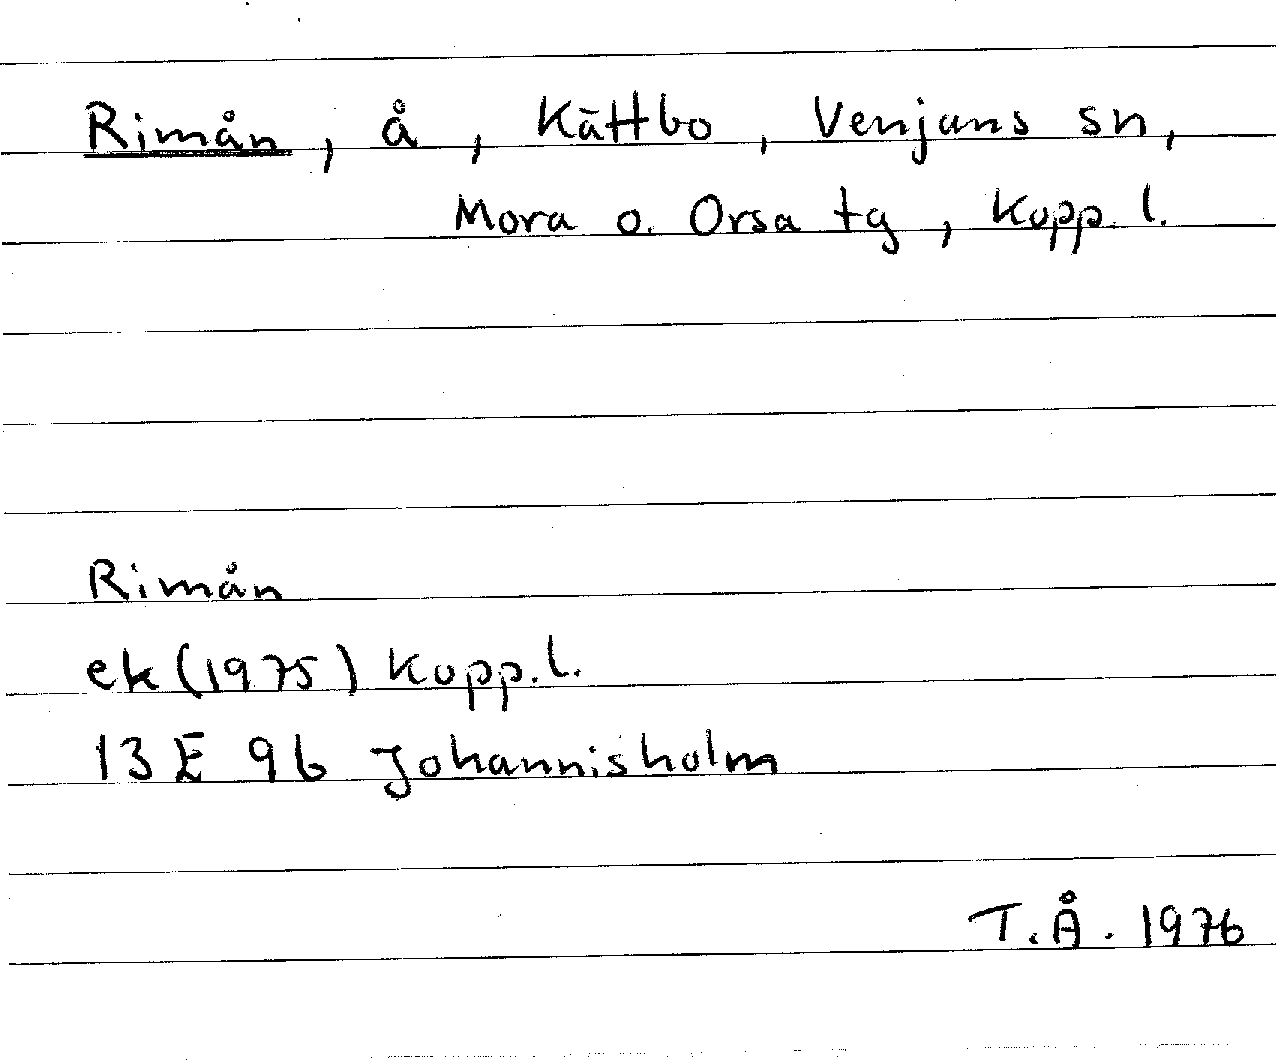 Rimån, å, Kättbo, Venjans sn,
Mora o. Orsa tg, Kopp. l.
Rimån
ek (1975) Kopp. l.
13 E 9b Johannisholm
T.Å. 1976